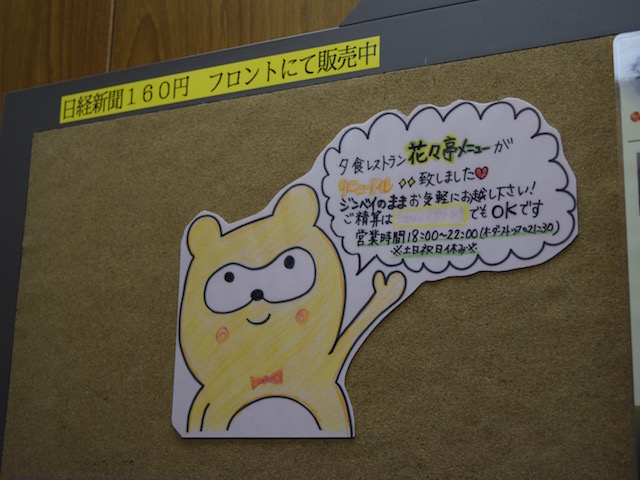 日経新聞160円 フロントにて販売中
夕食レストラン花々亭メニューが
リニューアル 致しました
ジンベイのままお気軽にお越し下さい!
ご精算は でもOKです
営業時間18:00〜22:00(オーダーストップ21:30)
※土日祝日休み※